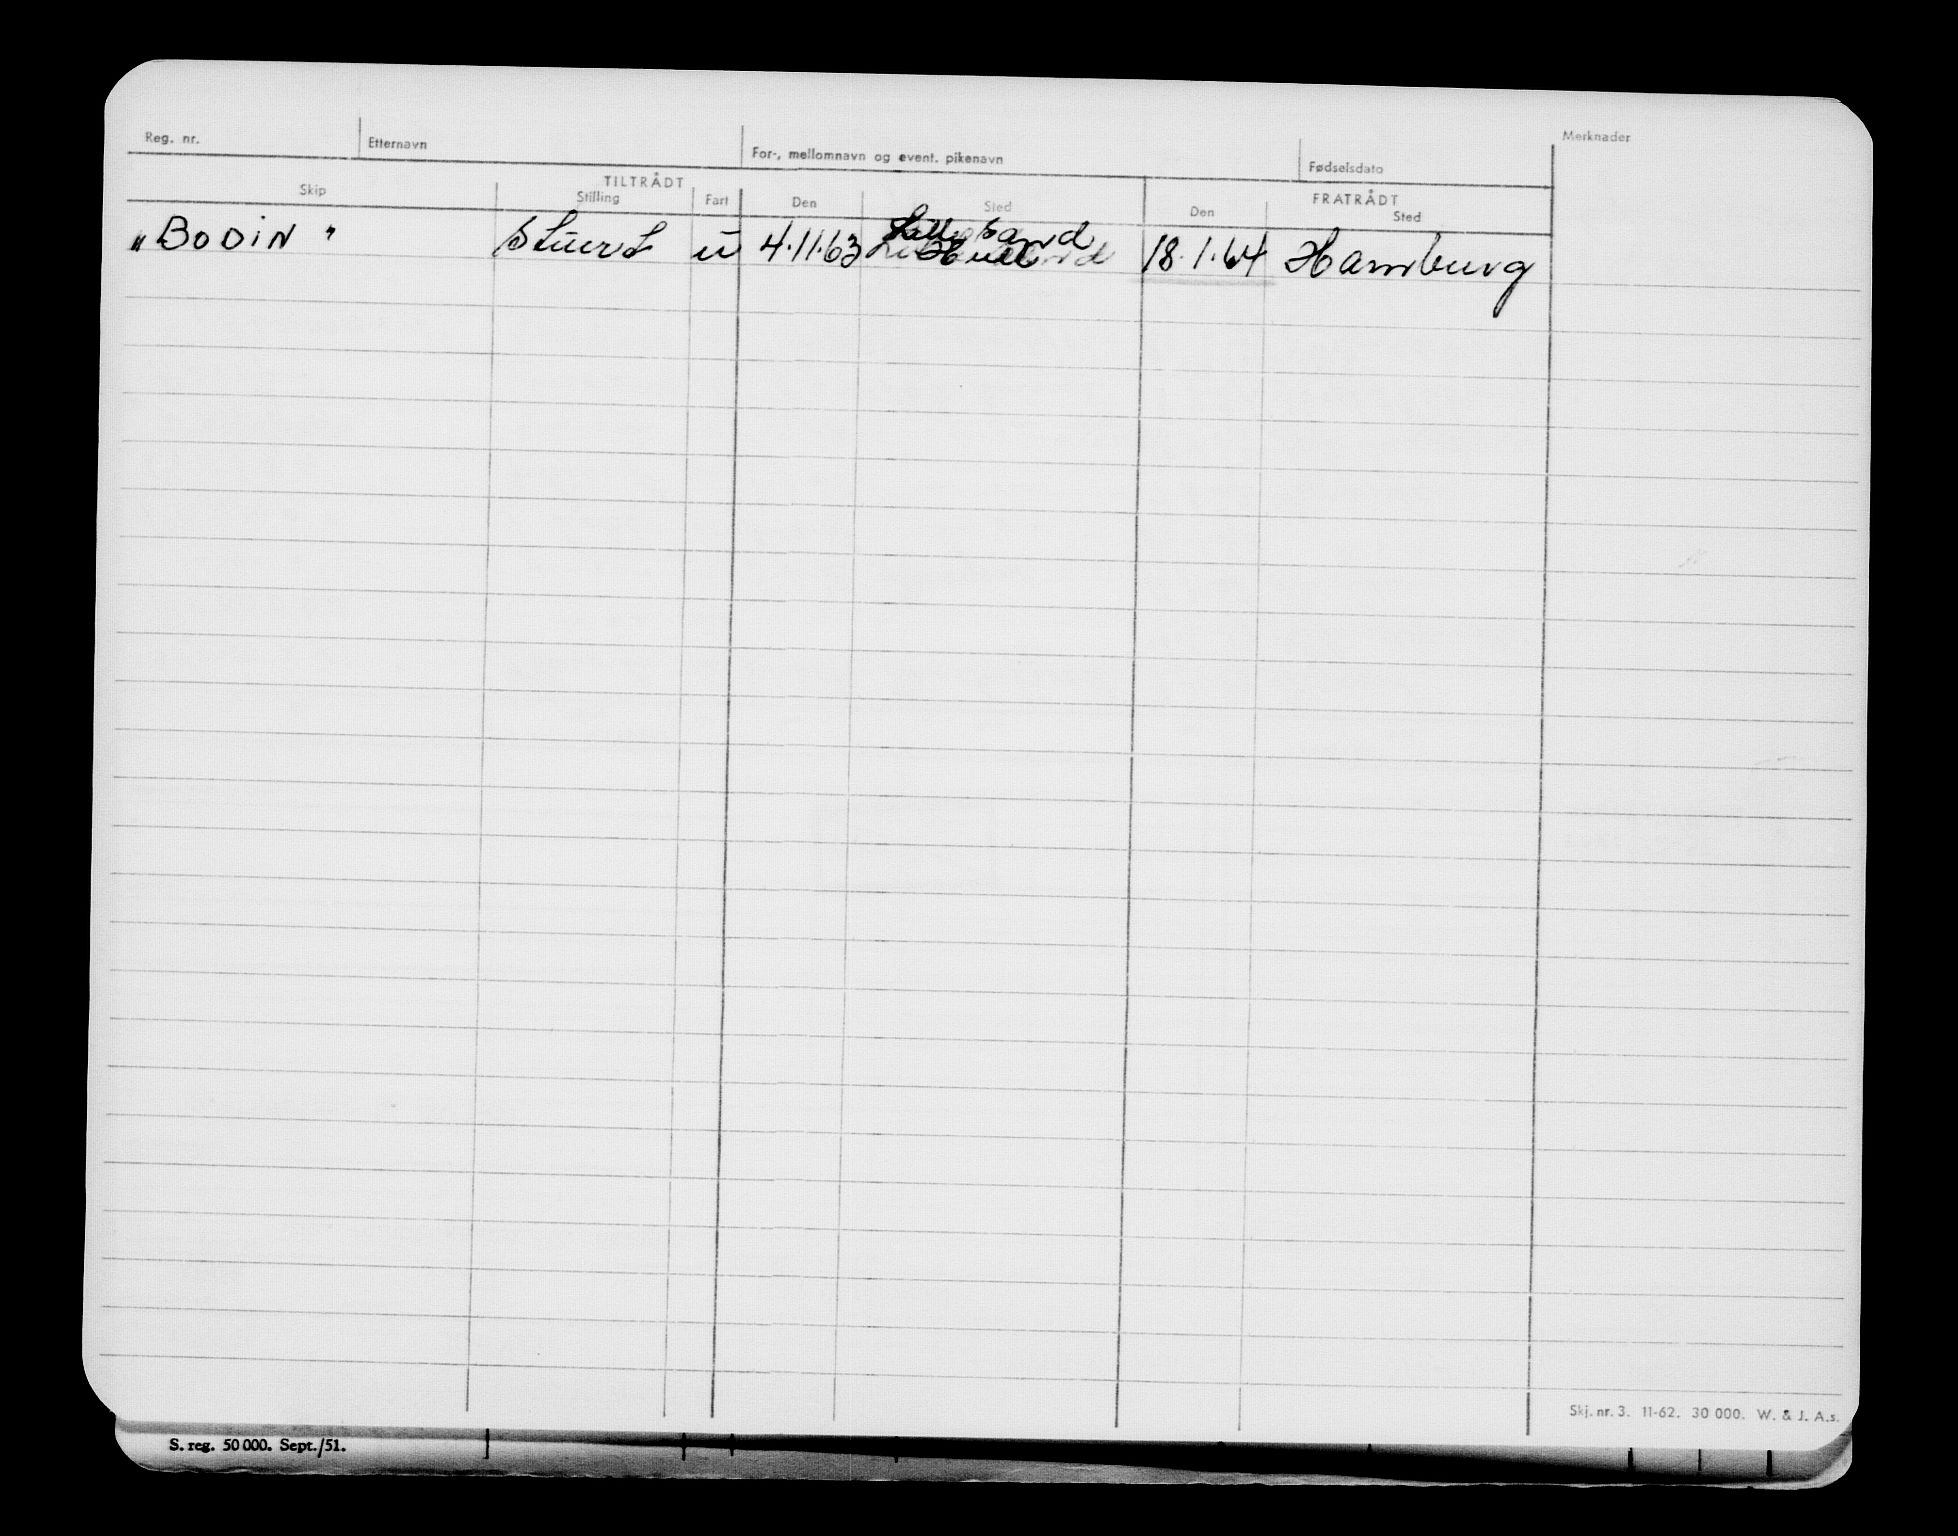 Reg. nr. Etternavn For-, mellomnavn og event. pikenavn Fødselsdato Merknader
TILTRÅDT FRATRÅDT
Skip Stilling Fart Den Sted Den Sted
„BODIN" u 4.11.63 18.1.64 Hamburg
Skj. nr. 3. 11-62. 30 000. W. & J. A.s.
S. reg. 50 000. Sept./51.